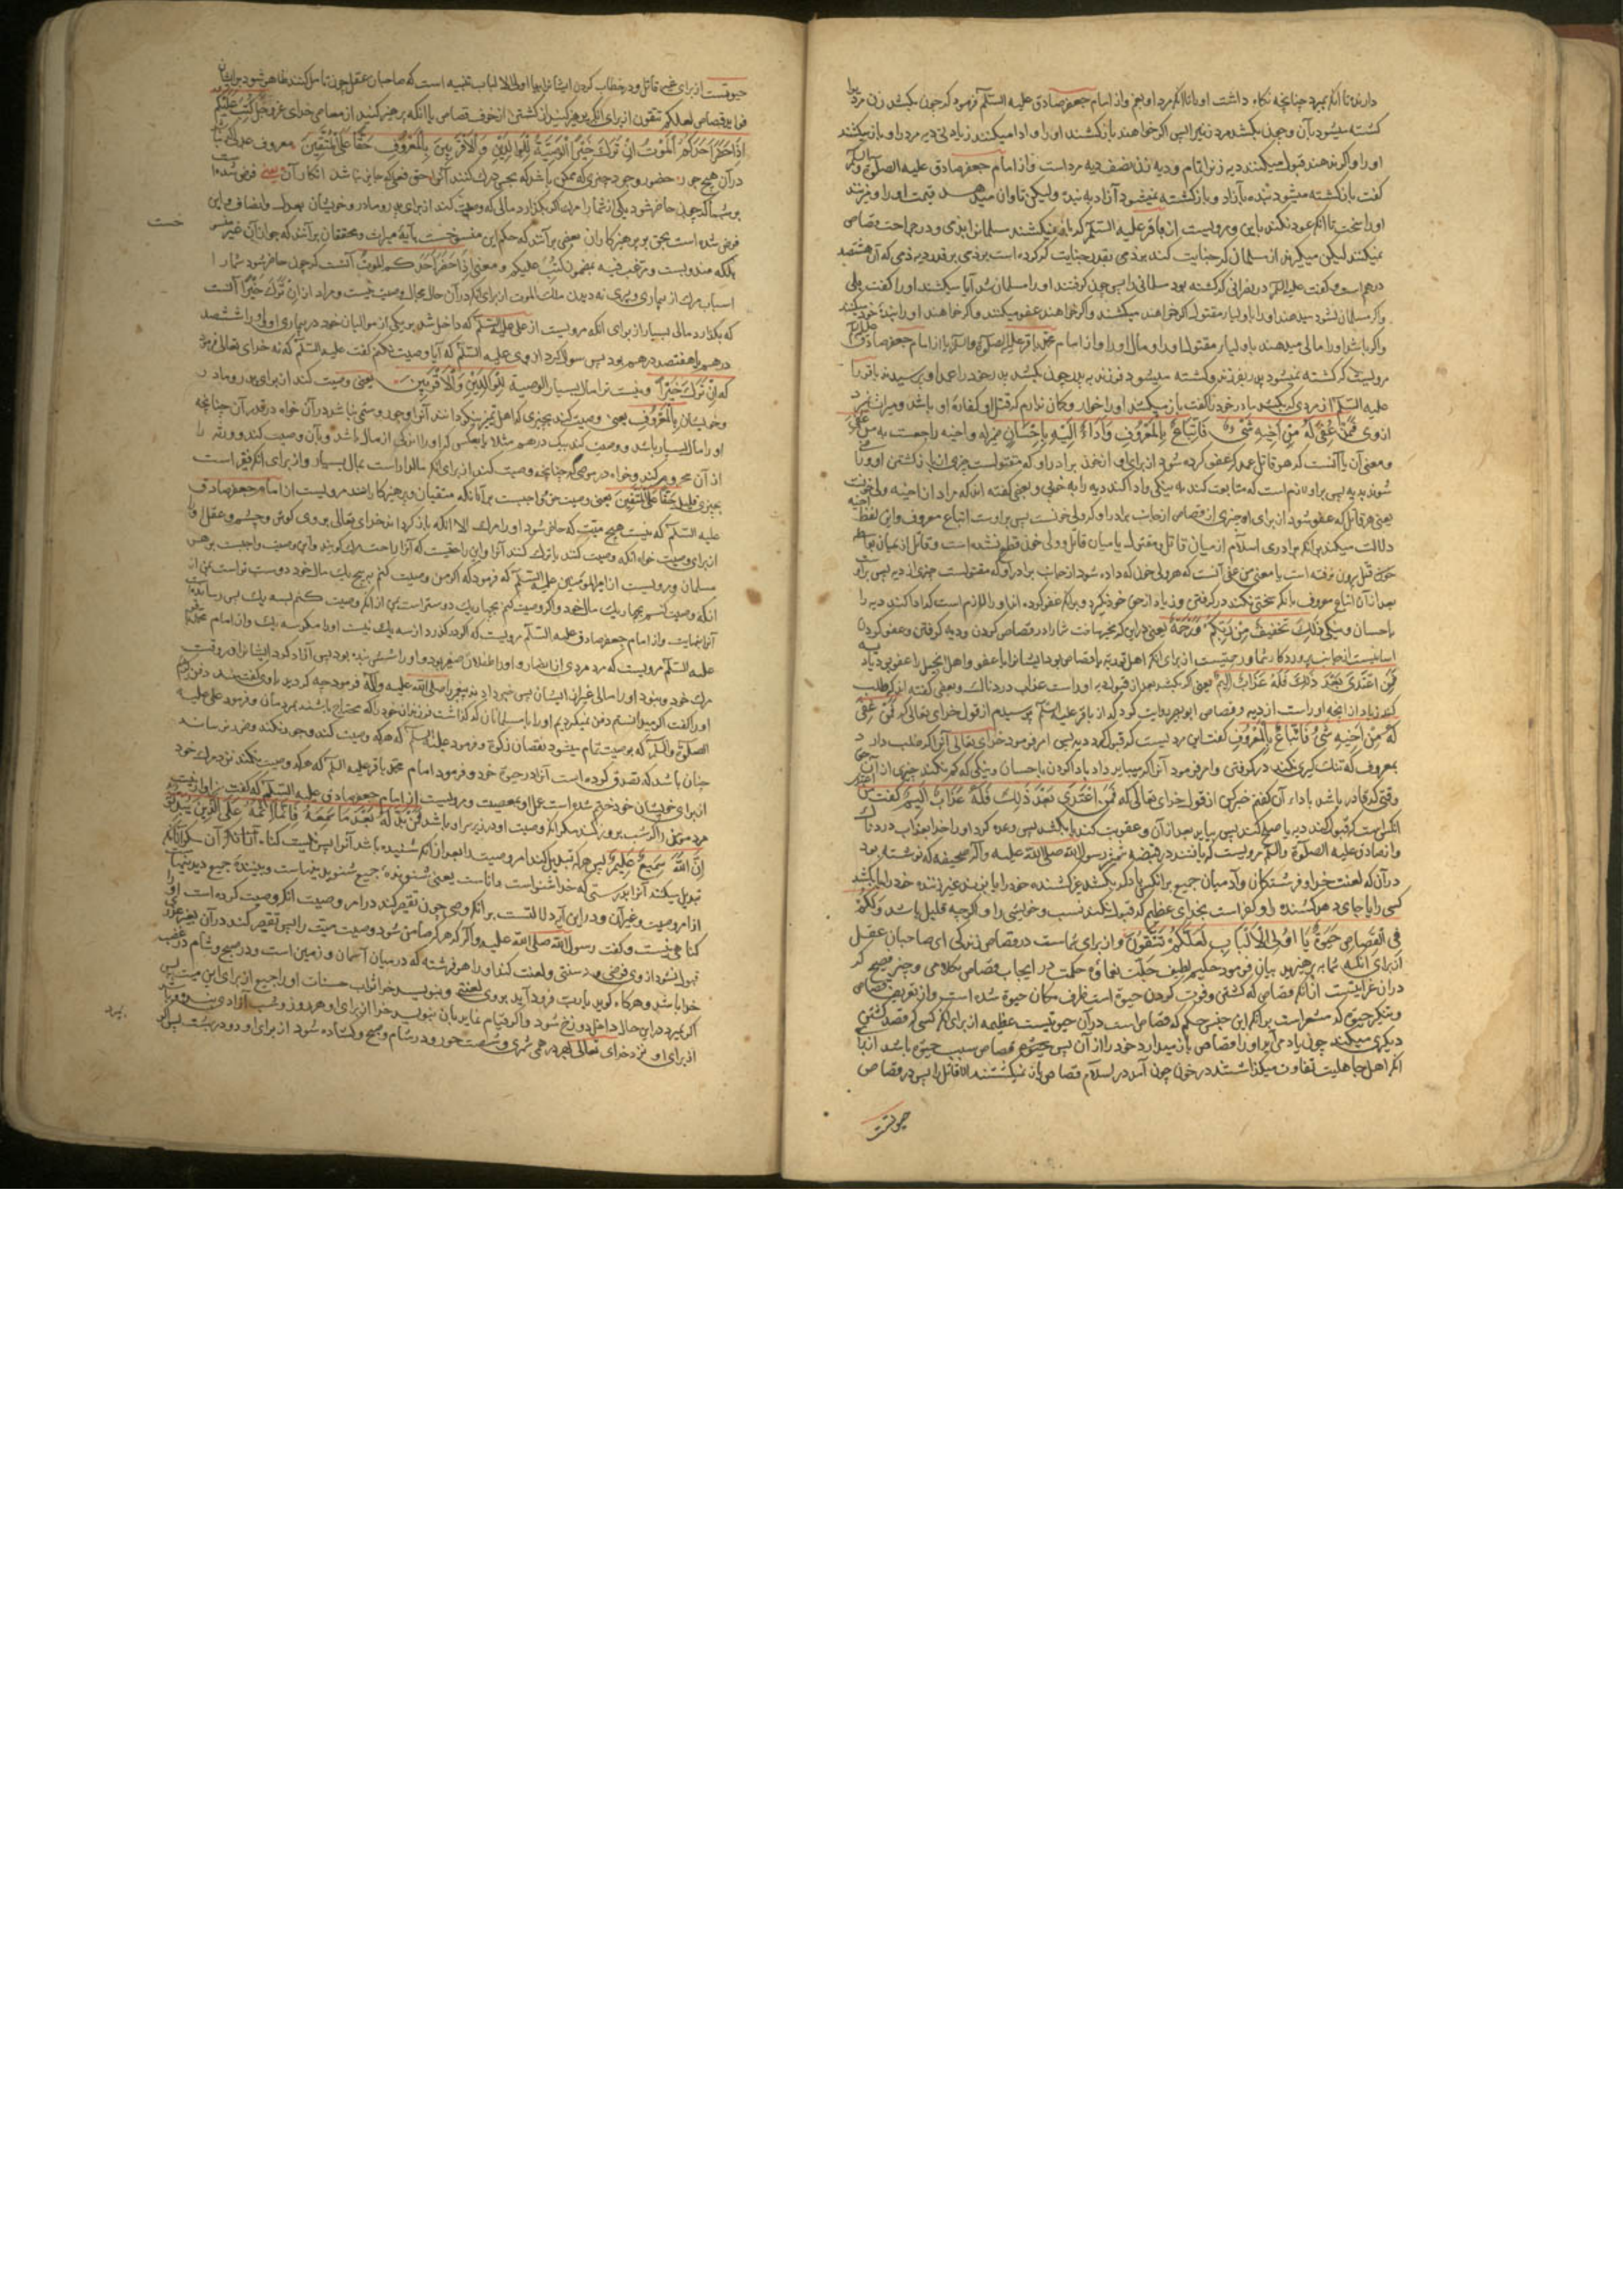 دارند تا آنکه بمیرد چنانچه نگاه داشت او تا آنکه مرد او نیز و از امام جعفر صادق علیه السلم فرموده که چون بکشد زن مرد را
کشته میشود بآن و چون بکشد مرد زنیرا پس اگر خواهند باز کشند او را و ادا میکنند زیادتی دیه مرد را و باز میکشند
او را و اگر ندهند قبول میکنند دیه زنرا تمام و دیه زن نصف دیه مرد است و از امام جعفر صادق علیه الصلوة و السلم
گفت باز کشته میشود بنده بآزاد و باز کشته نمیشود آزاد به بنده و لیکن تاوان میدهد قیمت او را و میزنند
او را سخت تا آنکه عود نکند باین و مرویست از باقر علیه السلم که باز نمیکشند مسلمانرا بذمی و در جراحت قصاص
نمیکنند لیکن میگیرند از مسلمان که جنایت کند بر ذمی بقدر جنایت که کرده است بر ذمی بر قدر دیه ذمی که آن هشتصد
درهم است و گفت علیه السلم در نصرانی که کشته بود مسلمانی را پس چون گرفتند او را مسلمان شد آیا میکشند او را گفت بلی
و اگر مسلمان نشود میدهند او را باولیاء مقتول اگر خواهند میکشند و اگر خواهند عفو میکنند و اگر خواهند او را بنده خود میکنند
و اگر باشد او را مالی میدهند باولیاء مقتول او را و مال او را و از امام محمد باقر علیه الصلوة والسلم یا از امام جعفر صادق علیه السلم
مرویست که کشته نمیشود پدر بفرزند و کشته میشود فرزند به پدر چون بکشد پدر خود را عمدا و پرسیدند باقر را
علیه السلم از مردی که بکشد مادر خود را گفت باز میکشند او را خوار و گمان ندارم که قتل او کفاره او باشد و میراث نمیبرد
از وی فَمَنْ عُفِيَ لَهُ مِنْ أَخِيهِ شَيْءٌ فَاتِّبَاعٌ بِالْمَعْرُوفِ وَأَدَاءٌ إِلَيْهِ بِإِحْسَانٍ ضمیر له و اخیه راجعست به من عفی
و معنی آن یا آنست که هر قاتل عمد که عفو کرده شود از برای او از خون برادر او که مقتولست چیزی از باز کشتن او و راضی
شوند بدیه پس بر او لازم است که متابعت کند به نیکی و ادا کند دیه را به خوبی و بعضی گفته اند که مراد از اخیه ولی خونست
یعنی هر قاتل که عفو شود از برای او چیزی از قصاص از جانب برادر او که ولی خونست پس بر اوست اتباع معروف و این لفظ اخیه
دلالت میکند بر آنکه برادری اسلام از میان قاتل و مقتول یا میان قاتل و ولی خون قطع نشده است و قاتل از میان بواسطه
خون قتل بیرون نرفته است یا معنی من عفی آنست که هر ولی خون که داده شود از جانب برادر او که مقتولست چیزی از دیه پس بر اوست
بعد از آن اتباع معروف بآنکه سختی نکند در گرفتن و زیاد از حق خود نگیرد و بر آنکه عفو کرده اند او را لازم است که ادا کند دیه را
باحسان و نیکی ذَلِكَ تَخْفِيفٌ مِنْ رَبِّكُمْ وَرَحْمَةٌ یعنی در این که مخیر ساخت شما را در قصاص کردن و دیه گرفتن و عفو کردن
اسانیست از جانب پروردگار شما و رحمتیست از برای آنکه اهل توریة را قصاص بود ایشانرا با عفو و اهل انجیل را عفو بود یا دیه
فَمَنِ اعْتَدَى بَعْدَ ذَلِكَ فَلَهُ عَذَابٌ أَلِيمٌ یعنی اگر بکشد بعد از قبول دیه او راست عذاب دردناک و بعضی گفته اند که طلب
کند زیاد از آنچه او راست از دیه و قصاص ابو بصیر روایت کرد که از باقر علیه السلم پرسیدم از قول خدای تعالی که فَمَنْ عُفِيَ
لَهُ مِنْ أَخِيهِ شَيْءٌ فَاتِّبَاعٌ بِالْمَعْرُوفِ گفت این مردیست که قبول کرد دیه پس امر فرمود خدای تعالی آنرا که طلب دارد
بمعروف که تنک گیری نکند در گرفتن و امر فرمود آنرا که میباید داد باداکردن باحسان و نیکی که کم نکند چیزی از آن حق
وقتی که قادر باشد باداء آن گفتم خبر کن از قول خدای تعالی که فَمَنِ اعْتَدَى بَعْدَ ذَلِكَ فَلَهُ عَذَابٌ أَلِيمٌ گفت این
آنکس است که قبول کند دیه یا صلح کند پس بیاید بعد از آن و عقوبت کند یا بکشد پس وعده کرد او را خدا بعذاب دردناک
و از صادق علیه الصلوة والسلم مرویست که یافتند در قبضه شمشیر رسول الله صلی الله علیه و آله صحیفه که نوشته بود
در آن که لعنت خدا و فرشتگان و آدمیان جمیع بر آنکس باد که بکشد غیر کشنده خود را یا بزند غیر زننده خود را یا بکشد
کسی را یا جای دهد کشنده را و کفر است بخدای عظیم که قبول نکند نسب و خویشی را و اگرچه قلیل باشد وَلَكُمْ
فِي الْقِصَاصِ حَيَوةٌ يَا أُولِي الْأَلْبَابِ لَعَلَّكُمْ تَتَّقُونَ و از برای شماست در قصاص زندگی ای صاحبان عقل
از برای آنکه شما بپرهیزید بیان فرمود حکیم لطیف جلّت نعمائه حکمت در ایجاب قصاص بکلامی وجیز فصیح که
در آن غرابتیست از آنکه قصاص که کشتن و فوت کردن حیوة است ظرف مکان حیوة شده است و از تعریف قصاص
و تنکیر حیوة که مشعر است بر آنکه این جنس حکم که قصاص است در آن حیوتیست عظیمه از برای آنکه کسی که قصد کشتن
دیگری میکند چون یاد می آید او را قصاص باز میدارد خود را از آن پس قصاص سبب حیوة باشد از برای
آنکه اهل جاهلیت تفاوت میگذاشتند در خون چون آمد در اسلام قصاص باز نمیکشتند الا قاتل را پس در قصاص
حیوتست
حیوتست از برای غیر قاتل و در خطاب کردن ایشانرا بیا اولی الالباب تنبیه است که صاحبان عقل چون تامل کنند ظاهر شود بر ایشان
فواید قصاص لعلکم تتقون از برای آنکه بپرهیز کنید از کشتن از خوف قصاص یا آنکه پرهیز کنید از معاصی خدای عز و جل كُتِبَ عَلَيْكُمْ
إِذَا حَضَرَ أَحَدَكُمُ الْمَوْتُ إِنْ تَرَكَ خَيْرًا الْوَصِيَّةُ لِلْوَالِدَيْنِ وَالْأَقْرَبِينَ بِالْمَعْرُوفِ حَقًّا عَلَى الْمُتَّقِينَ معروف عدلی که نباشد
در آن هیچ جور حضور وجود چیزی که ممکن باشد که بحس درک کنند آنرا حق فعلی که جایز نباشد انکار آن یعنی فرض شده است
بر شما که چون حاضر شود یکی از شما را مرگ اگر بگذارد مالی که وصیت کند از برای پدر و مادر و خویشان بعدل و انصاف و این
فرض شده است بحق بر پرهیزکاران بعضی برآنند که حکم این منسوخست بآیه میراث و محققان برآنند که جواز آن غیر منسوخست
خست
بلکه مندوبست و مرغب فیه بمضمون كُتِبَ علیکم و معنی إِذَا حَضَرَ أَحَدَكُمُ الْمَوْتُ آنست که چون حاضر شود شما را
اسباب مرگ از بیماری و پیری نه دیدن ملک الموت از برای آنکه در آن حال مجال وصیت نیست و مراد از إِنْ تَرَكَ خَيْرًا آنست
که بگذارد مالی بسیار از برای آنکه مرویست از علی علیه السلم که داخل شد بر یکی از موالیان خود در بیماری او و او را ششصد
درهم یا هفتصد درهم بود پس سوال کرد از وی علیه السلم که آیا وصیت بکنم گفت علیه السلم که نه خدای تعالی فرمود
که إِنْ تَرَكَ خَيْرًا و نیست ترا مال بسیار الوصية لِلْوَالِدَيْنِ وَالْأَقْرَبِينَ یعنی وصیت کند از برای پدر و مادر
و خویشان بِالْمَعْرُوفِ یعنی وصیت کند بچیزی که اهل تمیز نیکو دانند آنرا و جور و ستمی نباشد در آن خواه در قدر آن چنانچه
او را مال بسیار باشد و وصیت کند بیک درهم مثلا یا بعکس که او را اندکی از مال باشد و بآن وصیت کند و ورثه را
از آن محروم کند و خواه در موصی له چنانچه وصیت کند از برای آنکه مالدار است بمال بسیار و از برای آنکه فقیر است
بچیزی قلیل حَقًّا عَلَى الْمُتَّقِينَ یعنی وصیت حق و واجبست بر آنانکه متقیان و پرهیزکارانند مرویست از امام جعفر صادق
علیه السلم که نیست هیچ میت که حاضر شود او را مرگ الا آنکه باز گرداند خدای تعالی بر وی گوش و چشم و عقل او را
از برای وصیت خواه آنکه وصیت کند یا ترک کند آنرا و این راحتیست که آنرا راحت مرگ گویند و این وصیت واجبست بر هر
مسلمان و مرویست از امیر المومنین علیه السلم که فرمود که اگر من وصیت کنم به پنج یک مال خود دوست تر است نزد من از
آنکه وصیت کنم بچهار یک مال خود و اگر وصیت کنم بچهار یک دوستر است نزد من از آنکه وصیت کنم بسه یک پس رسانیده
آنرا بنهایت و از امام جعفر صادق علیه السلم مرویست که اگر درگذرد از سه یک نیست او را مگر سه یک و از امام محمد باقر
علیه السلم مرویست که مرد مردی از انصار و او را طفلان صغیر بود و او را شش بنده بود پس آزاد کرد ایشانرا در وقت
مرگ خود و نبود او را مالی غیر از ایشان پس خبر دادند پیغمبر را صلی الله علیه و آله فرمود چه کردید باوی گفتند دفن کردیم
او را گفت اگر میدانستم دفن نمیکردیم او را با مسلمانان که گذاشت فرزندان خود را که محتاج باشند بمردمان و فرمود علی علیه
الصلوة والسلم که بوصیت تمام میشود نقصان زکوة و فرمود علیه السلم که هر که وصیت کند و جور نکند و ضرر نرساند
چنان باشد که تصدق کرده است آنرا در حیوة خود و فرمود امام محمد باقر علیه السلم که هر که وصیت نکند نزد مرگ خود
از برای خویشان خود ختم شده است عمل او بمعصیت و مرویست از امام جعفر صادق علیه السلم که گفت سزاوار نیست
مرد مومن را که شب بروز کند مگر آنکه وصیت او در زیر سر او باشد فَمَنْ بَدَّلَهُ بَعْدَ مَا سَمِعَهُ فَإِنَّمَا إِثْمُهُ عَلَى الَّذِينَ يُبَدِّلُونَهُ
إِنَّ اللَّهَ سَمِيعٌ عَلِيمٌ پس هر که تبدیل کند امر وصیت را بعد از آنکه شنیده باشد آنرا پس نیست گناه آن الا بر آنان که
تبدیل میکنند آنرا بدرستی که خدا شنواست و داناست یعنی شنونده جمیع شنویدنیهاست و بیننده جمیع دیدنیهاست
از امر وصیت و غیر آن و در این آیه دلالتست بر آنکه وصی چون تقصیر کند در امر وصیت آنکه وصیت کرده است او را
گناهی نیست و گفت رسول الله صلی الله علیه و آله که هر که ضامن شود وصیت میت را پس تقصیر کند در آن بغیر عذر
قبول نشود از وی فرضی و نه سنتی و لعنت کند او را هر فرشته که در میان آسمان و زمین است و در صبح و شام در غضب
خدا باشد و هرگاه گوید یا رب فرود آید بر وی لعنتی و بنویسد خدا ثواب حسنات او را جمیع از برای این میت پس
اگر بمیرد در این حال داخل دوزخ شود و اگر قیام نماید بآن بنویسد خدا از برای او هر روز و شب آزادی بنده
از برای او نزد خدای تعالی بهر درهمی شهری و شصت حور و در شام و صبح گشاده شود از برای او دو در بهشت پس اگر
بمیرد